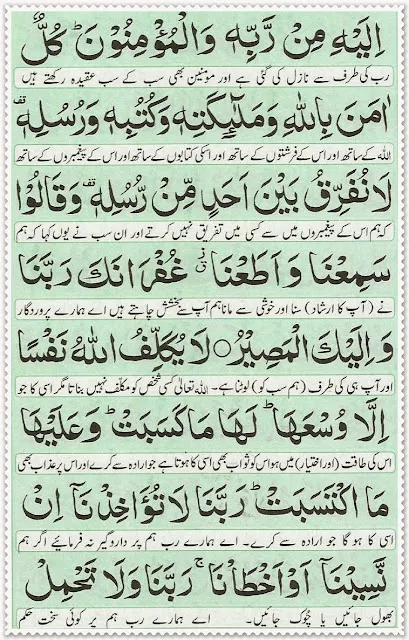 اِلَيْهِ مِنْ رَّبِّهٖ وَالْمُؤْمِنُوْنَ ؕ كُلٌّ
رب کی طرف سے نازل کی گئی ہے اور مومنین بھی سب کے سب عقیدہ رکھتے ہیں
اٰمَنَ بِاللّٰهِ وَمَلٰٓئِكَتِهٖ وَكُتُبِهٖ وَرُسُلِهٖ ۫
اللہ کے ساتھ اور اس کے فرشتوں کے ساتھ اور اسکی کتابوں کے ساتھ اور اس کے پیغمبروں کے ساتھ
لَا نُفَرِّقُ بَيْنَ اَحَدٍ مِّنْ رُّسُلِهٖ ۫ وَقَالُوْا
کہ ہم اس کے پیغمبروں میں سے کسی میں تفریق نہیں کرتے اور ان سب نے یوں کہا کہ ہم
سَمِعْنَا وَاَطَعْنَا ۫ غُفْرَانَكَ رَبَّنَا
نے (آپ کا ارشاد) سنا اور خوشی سے مانا ہم آپ سے بخشش چاہتے ہیں اے ہمارے پروردگار
وَاِلَيْكَ الْمَصِيْرُ ○ لَا يُكَلِّفُ اللّٰهُ نَفْسًا
اور آپ ہی کی طرف (ہم سب کو) لوٹنا ہے۔ اللہ تعالیٰ کسی شخص کو مکلف نہیں بناتا مگر اسی کا جو
اِلَّا وُسْعَهَا ؕ لَهَا مَا كَسَبَتْ وَعَلَيْهَا
اس کی طاقت (اور اختیار) میں ہو اس کو ثواب بھی اسی کا ہوتا ہے جو ارادہ سے کرے اور اس پر عذاب بھی
مَا اكْتَسَبَتْ ؕ رَبَّنَا لَا تُؤَاخِذْنَآ اِنْ
اسی کا ہو گا جو ارادہ سے کرے۔ اے ہمارے رب ہم پر داروگیر نہ فرمائیے اگر ہم
نَّسِيْنَآ اَوْ اَخْطَاْنَا ۚ رَبَّنَا وَلَا تَحْمِلْ
بھول جائیں یا چُوک جائیں۔ اے ہمارے رب ہم پر کوئی سخت حکم